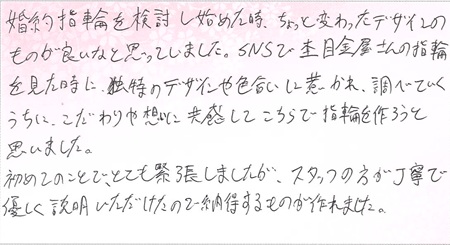 婚約指輪を検討し始めた時、ちょっと変わったデザインの
ものが良いなと思っていました。SNSで杢目金屋さんの指輪
を見た時に、独特のデザインや色合いに惹かれ、調べていく
うちに、こだわりや想いに共感してこちらで指輪を作ろうと
思いました。
初めてのことで、とても緊張しましたが、スタッフの方が丁寧で
優しく説明いただけたので納得するものが作れました。